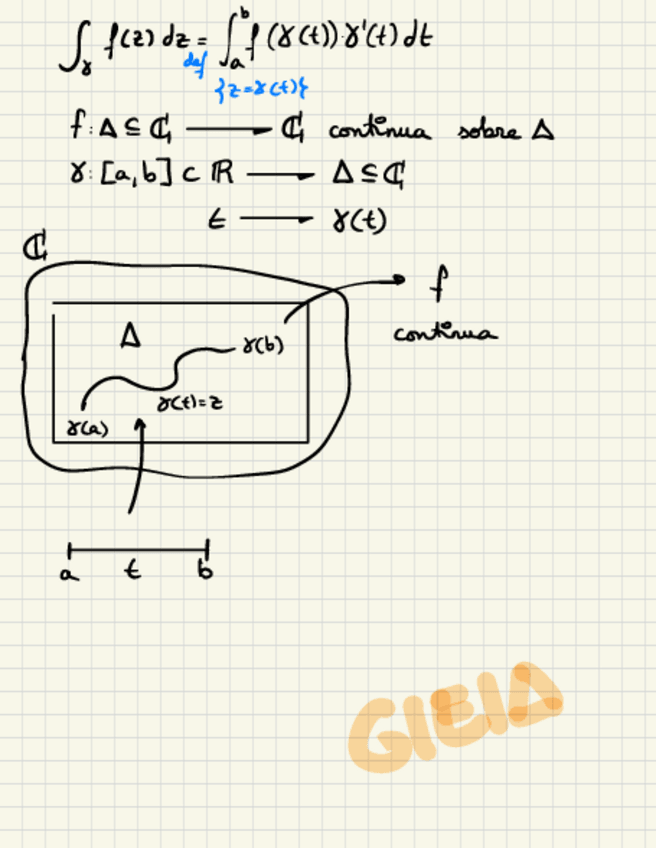 ∫_γ f(z) dz = ∫_a^b f(γ(t))·γ'(t) dt
def
{z=γ(t)}
f: Δ ⊆ ℂ ⟶ ℂ continua sobre Δ
γ: [a,b] ⊂ ℝ ⟶ Δ ⊆ ℂ
t ⟶ γ(t)
ℂ
f
Δ
continua
γ(b)
γ(t)=z
γ(a)
a t b
GIEIA